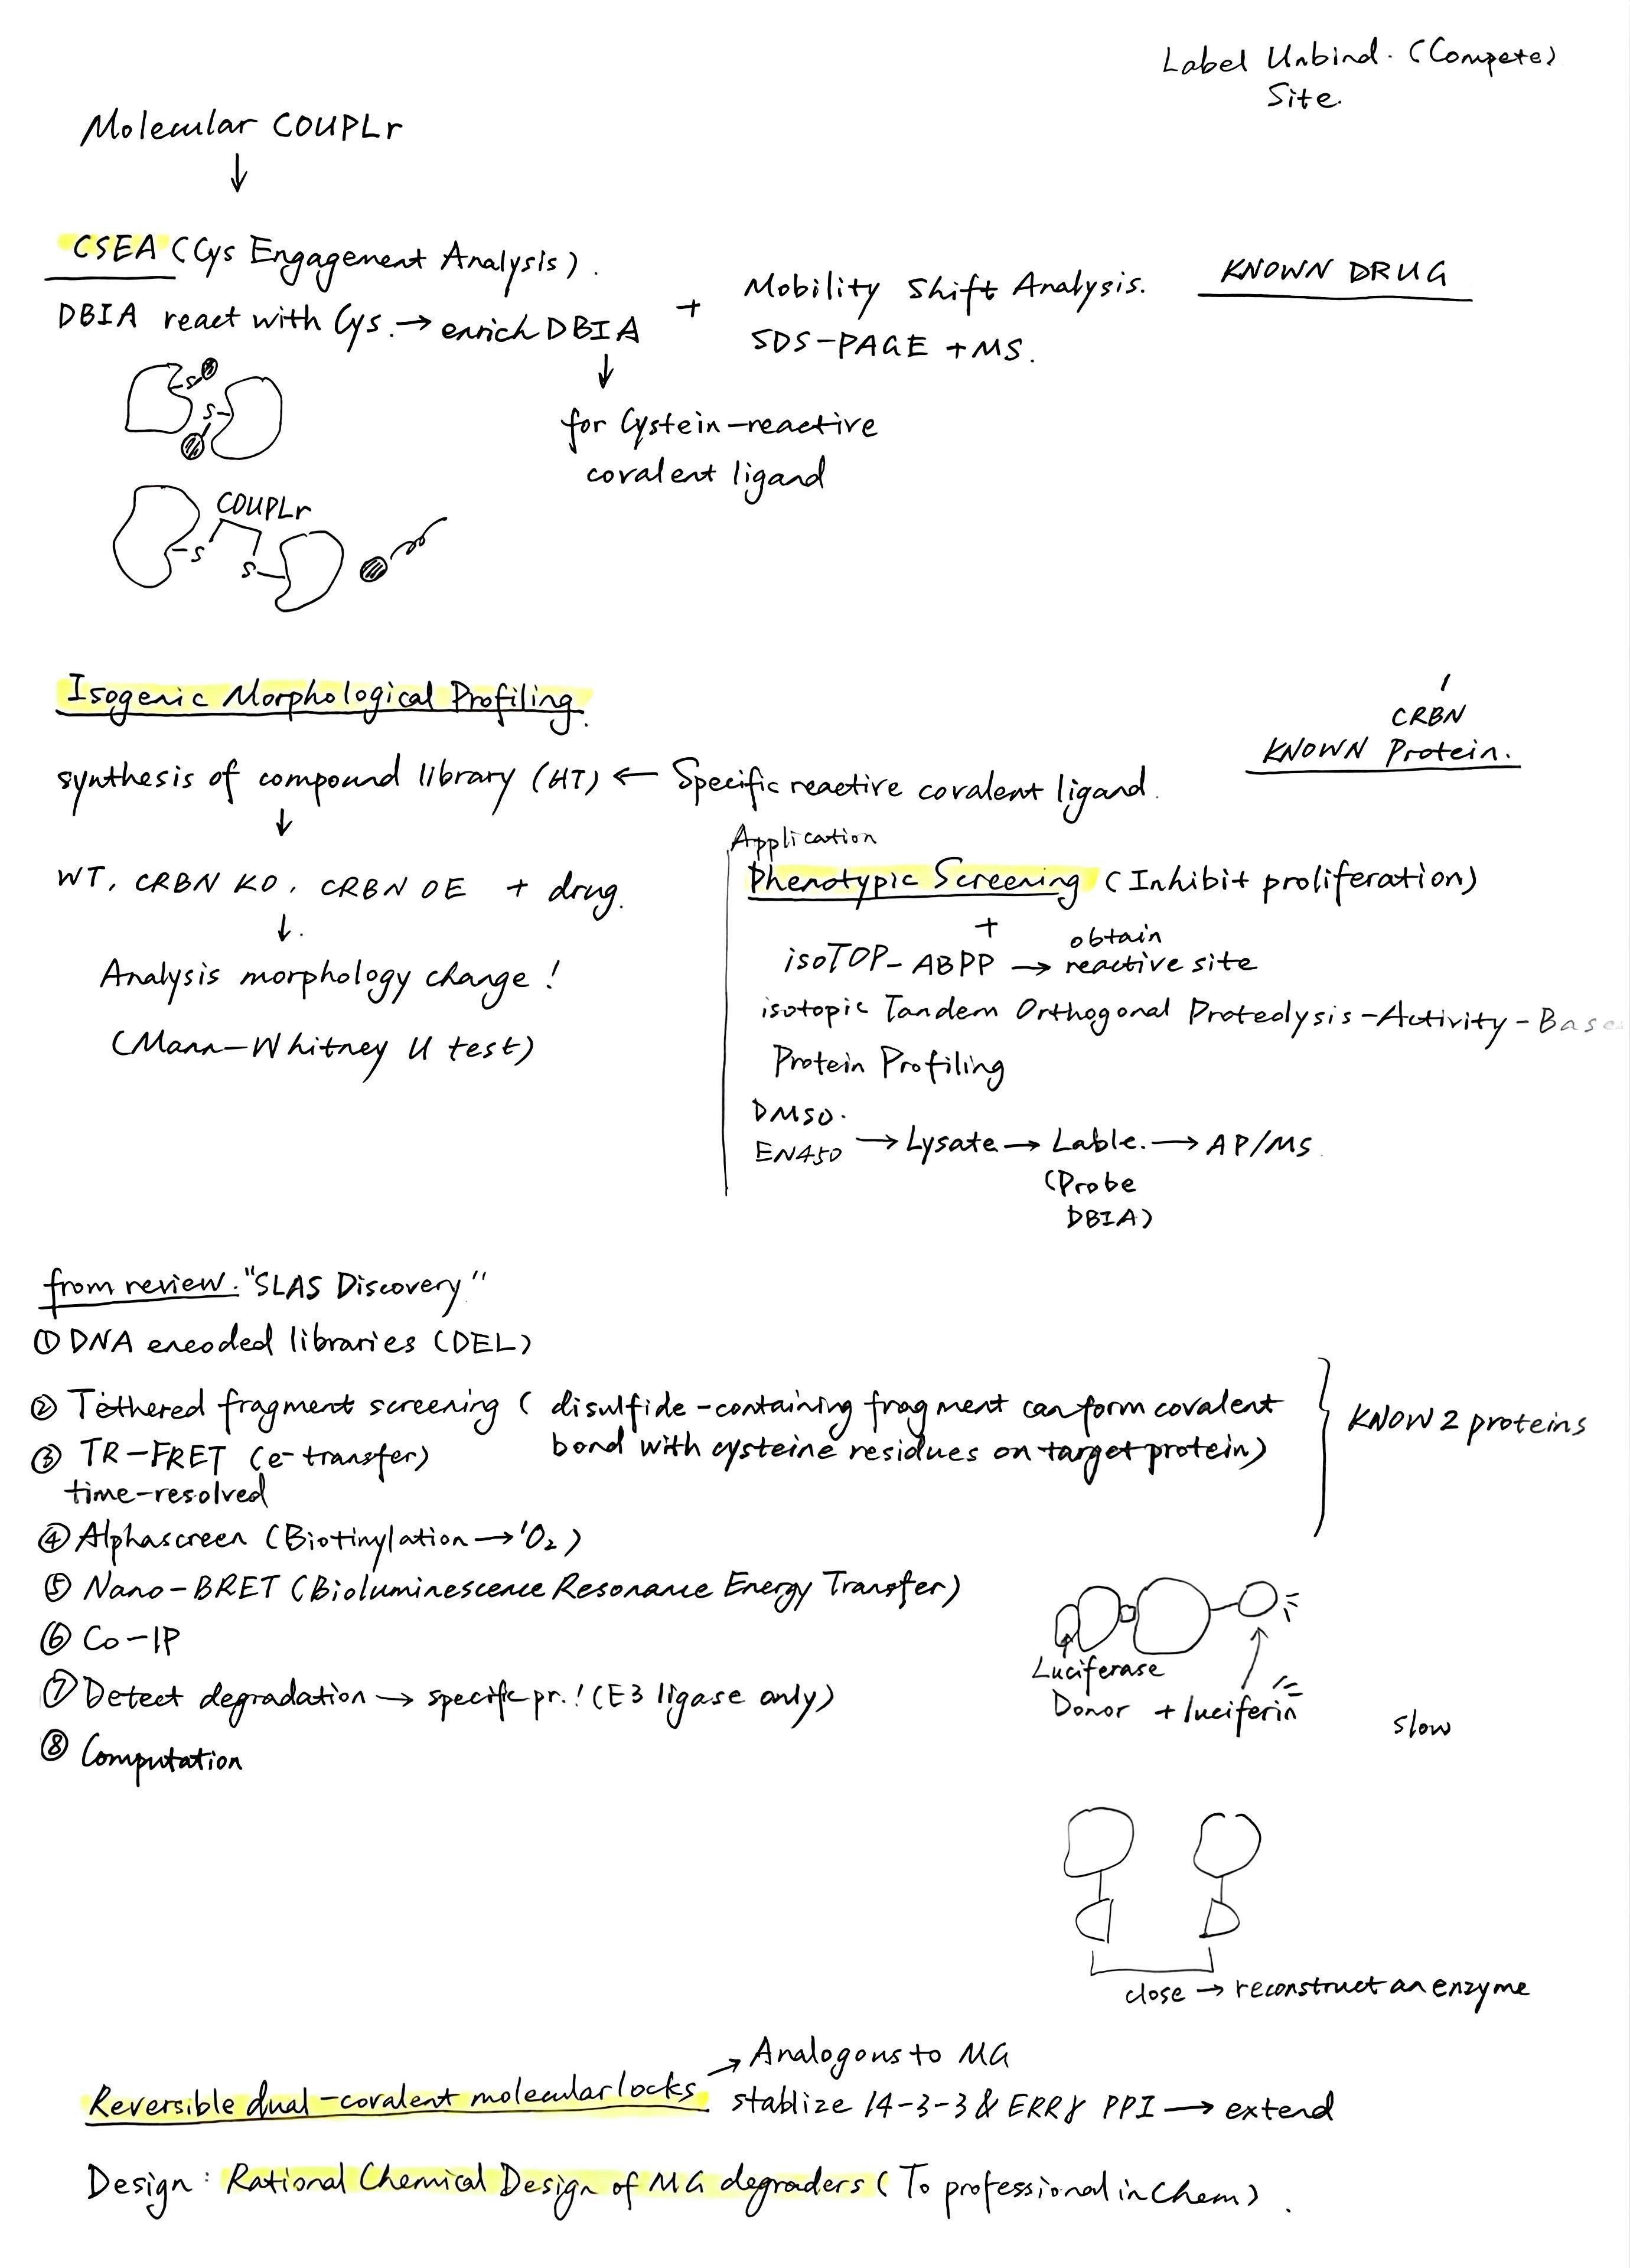 Label Unbind. (Compete)
Site.
Molecular COUPLr
↓
CSEA (Cys Engagement Analysis).
DBIA react with Cys. → enrich DBIA
+ Mobility Shift Analysis.
SDS-PAGE + MS.
KNOWN DRUG
↓
for Cystein-reactive
covalent ligand
s
s
COUPLr
s
s
Isogenic Morphological Profiling.
CRBN
KNOWN Protein.
synthesis of compound library (HT) ← Specific reactive covalent ligand.
↓
WT, CRBN KO, CRBN OE + drug.
↓.
Analysis morphology change!
(Mann-Whitney U test)
Application
Phenotypic Screening (Inhibit proliferation)
+
isoTOP-ABPP → obtain
reactive site
isotopic Tandem Orthogonal Proteolysis-Activity-Base
Protein Profiling
DMSO.
EN450 → Lysate → Lable. → AP/MS.
(Probe
DBIA)
from review. "SLAS Discovery"
① DNA encoded libraries (DEL)
② Tethered fragment screening ( disulfide-containing fragment can form covalent
bond with cysteine residues on target protein)
③ TR-FRET (e⁻ transfer)
time-resolved
KNOW 2 proteins
④ Alphascreen (Biotinylation → ¹O₂)
⑤ Nano-BRET (Bioluminescence Resonance Energy Transfer)
⑥ Co-IP
⑦ Detect degradation → specific pr.! (E3 ligase only)
⑧ Computation
Luciferase
Donor + luciferin
slow
close → reconstruct an enzyme
Reversible dual-covalent molecular locks
→ Analogons to MG
stablize 14-3-3 & ERRγ PPI → extend
Design: Rational Chemical Design of MG degraders ( To professional in Chem).